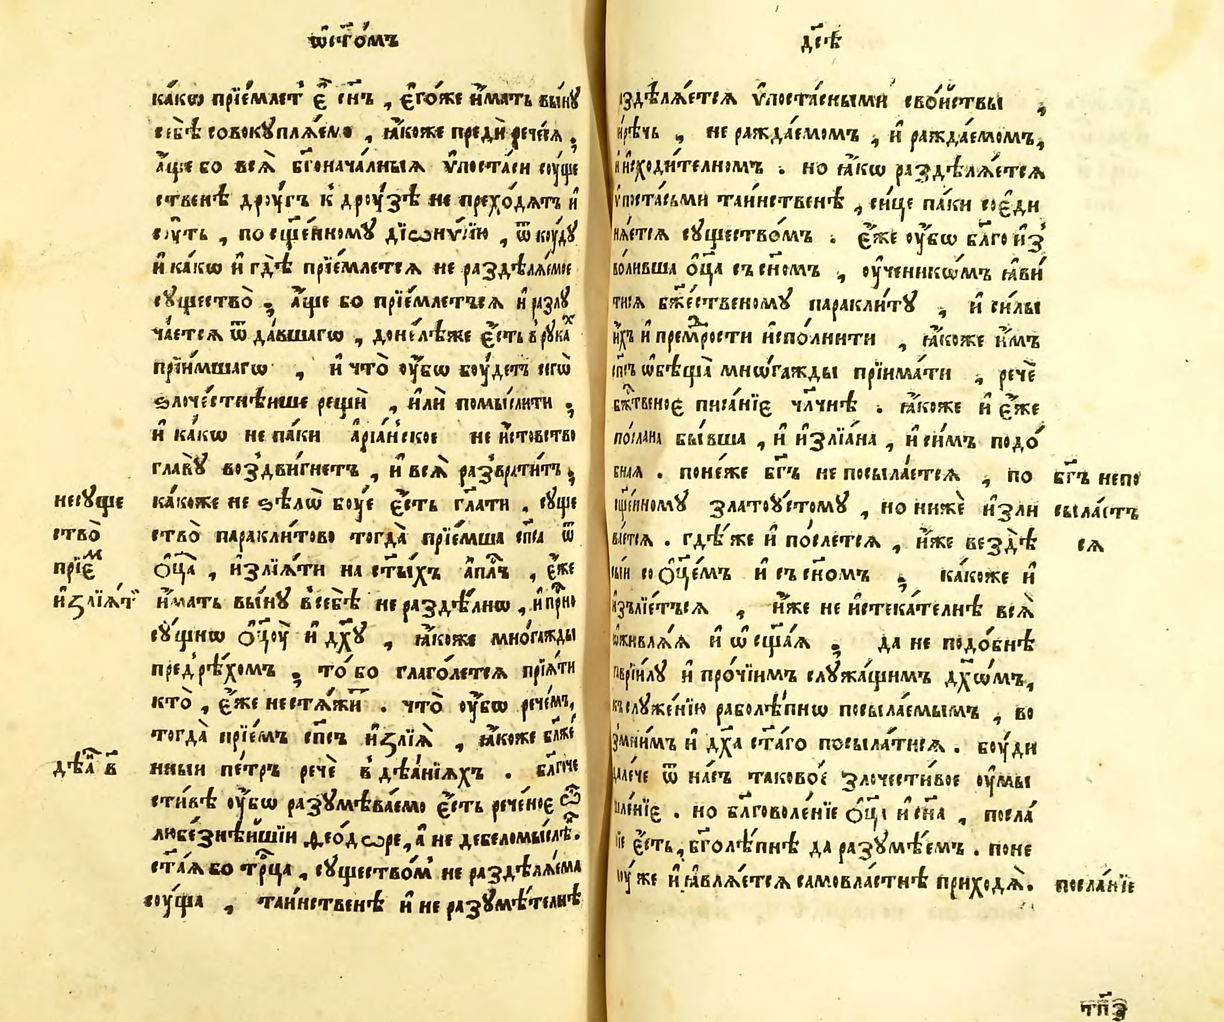 ѡ҆ ст҃о́мъ
ка́кѡ прїе́млет̾ є҆́ сн҃ъ , є҆го́же и҆́мать вы́нꙋ
себѣ̀ совокꙋплѧ́емо , ꙗ҆́коже пре́ди рече́сѧ ,
а҆́ще бо всѧ̀ бг҃онача́лныѧ ѵ҆поста́си сꙋ́ще
ственѣ дрꙋ́гъ к̾ дрꙋ́зѣ не прехо́дѧтъ и҆
сꙋ́ть , по сщ҃е́нномꙋ дїѡнѵ́сїю , ѿ кꙋ́дꙋ
и҆ ка́кѡ и҆ гдѣ̀ прїе́млетсѧ не раздѣлѧ́емое
сꙋщество̀ ; а҆́ще бо прїе́млетъсѧ и҆ разлꙋ
ча́етсѧ ѿ да́вшагѡ , до́нелѣже є҆́сть в̾ рꙋка́х
прїи́мшагѡ , и҆ что̀ ᲂу҆́бѡ бꙋ́детъ сегѡ̀
ѕлоче́стнѣише рещѝ , и҆лѝ помы́слити ;
и҆ ка́кѡ не па́ки а҆рїа́нское не и҆́стовство
главꙋ̀ воздви́гнетъ , и҆ всѧ̀ разврати́тъ ;
ка́коже не ѕѣлѡ̀ бꙋ́е є҆́сть гл҃ати . сꙋще
ство̀ параклитово тогда̀ прїе́мша сп҃са ѿ
ѻ҆ц҃а̀ , и҆злїѧ́ти на ст҃ы́хъ а҆пⷭ҇лъ , є҆́же
и҆́мать вы́нꙋ в̾ себѣ̀ не раздѣ́лнѡ , и҆ при́сно
сꙋ́щнѡ ѻ҆ц҃ꙋ̀ и҆ дх҃ꙋ , ꙗ҆́коже мно́гажды
предрѣ́хомъ ; то́ бо глаго́летсѧ прїѧ́ти
кто̀ , є҆́же не стѧ́жи . что̀ ᲂу҆́бѡ рече́мъ ,
тогда̀ прїе́мъ сп҃съ и҆злїѧ̀ , ꙗ҆́коже бл҃же́
нныи пе́тръ речѐ в̾ дѣѧ́нїѧхъ . бл҃гоче
сти́вѣ ᲂу҆́бѡ разꙋмѣва́емо є҆́сть рече́ное ѽ
любе́знѣйшїи ѳео́дѡре , а҆ не дебеломы́слѣⷩ҇ .
ст҃а́ѧ бо трⷪ҇ца , сꙋщество́м̾ не раздѣлѧ́ема
сꙋ́ща , таи́нственѣ и҆ не разꙋмѣ́телнѣ
не сꙋще
ство̀
прїе́м
и҆злїѧ́т
дѣѧ҃ в҃
дс҃ѣ
аздѣлѧ́етсѧ ѵ҆поста́сными сво́йствы ,
и҆рѣ́чь , не ражда́емомъ , и҆ ражда́емомъ ,
и҆ и҆схо́дителномъ . но ꙗ҆́кѡ раздѣлѧ́етсѧ
ѵ҆поста́сьми таи́нственѣ , си́це па́ки соеди
нѧ́етсѧ сꙋщество́мъ . є҆́же ᲂу҆́бѡ бл҃го и҆з̾
во́ливша ѻ҆ц҃а съ сн҃омъ , ᲂу҆ченикѡ́мъ ꙗ҆ви́
тисѧ бж҃е́ственомꙋ паракли́тꙋ , и҆ си́лы
и҆́хъ и҆ премⷣрости и҆спо́лнити , ꙗ҆́коже и҆́мъ
сп҃съ ѡ҆бѣща̀ мно́гажды прїима́ти , речѐ
бж҃твеное писа́нїе чл҃чнѣ . ꙗ҆́коже и҆ є҆́же
по́слана бы́вша , и҆ и҆злїа́на , и҆ си́мъ подо́
бнаѧ . поне́же бг҃ъ не посыла́етсѧ , по
сщ҃е́нномꙋ златоꙋ́стомꙋ , но ниже́ и҆зли
ва́етсѧ . гдѣ́ же и҆ по́слетсѧ , и҆́же вездѣ̀
сы́и со ѻ҆ц҃е́мъ и҆ съ сн҃омъ ; ка́коже и҆
и҆зълїе́тъсѧ , и҆́же не и҆стека́телнѣ всѧ̀
ѡ҆живлѧ́ѧ и҆ ѡ҆сщ҃а́ѧ ; да не подо́бнѣ
гаврїи́лꙋ и҆ про́чїимъ слꙋжа́щимъ дх҃ѡ́мъ ,
къ слꙋже́нїю раболѣ́пнѡ посыла́емымъ , во
змни́мъ и҆ дх҃а ст҃а́го посыла́тисѧ . бꙋ́ди
дале́че ѿ на́съ таково́е злочести́вое ᲂу҆мы
шле́нїе . но бл҃говоле́нїе ѻ҆ц҃а и҆ сн҃а , посла́
нїе є҆́сть , бг҃олѣ́пнѣ да разꙋмѣ́емъ . поне
ꙋ́ же и҆ ꙗ҆влѧ́етсѧ самовла́стнѣ приходѧ̀ .
бг҃ъ не по
сыла́етъ
сѧ
посла́нїе
тп҃з